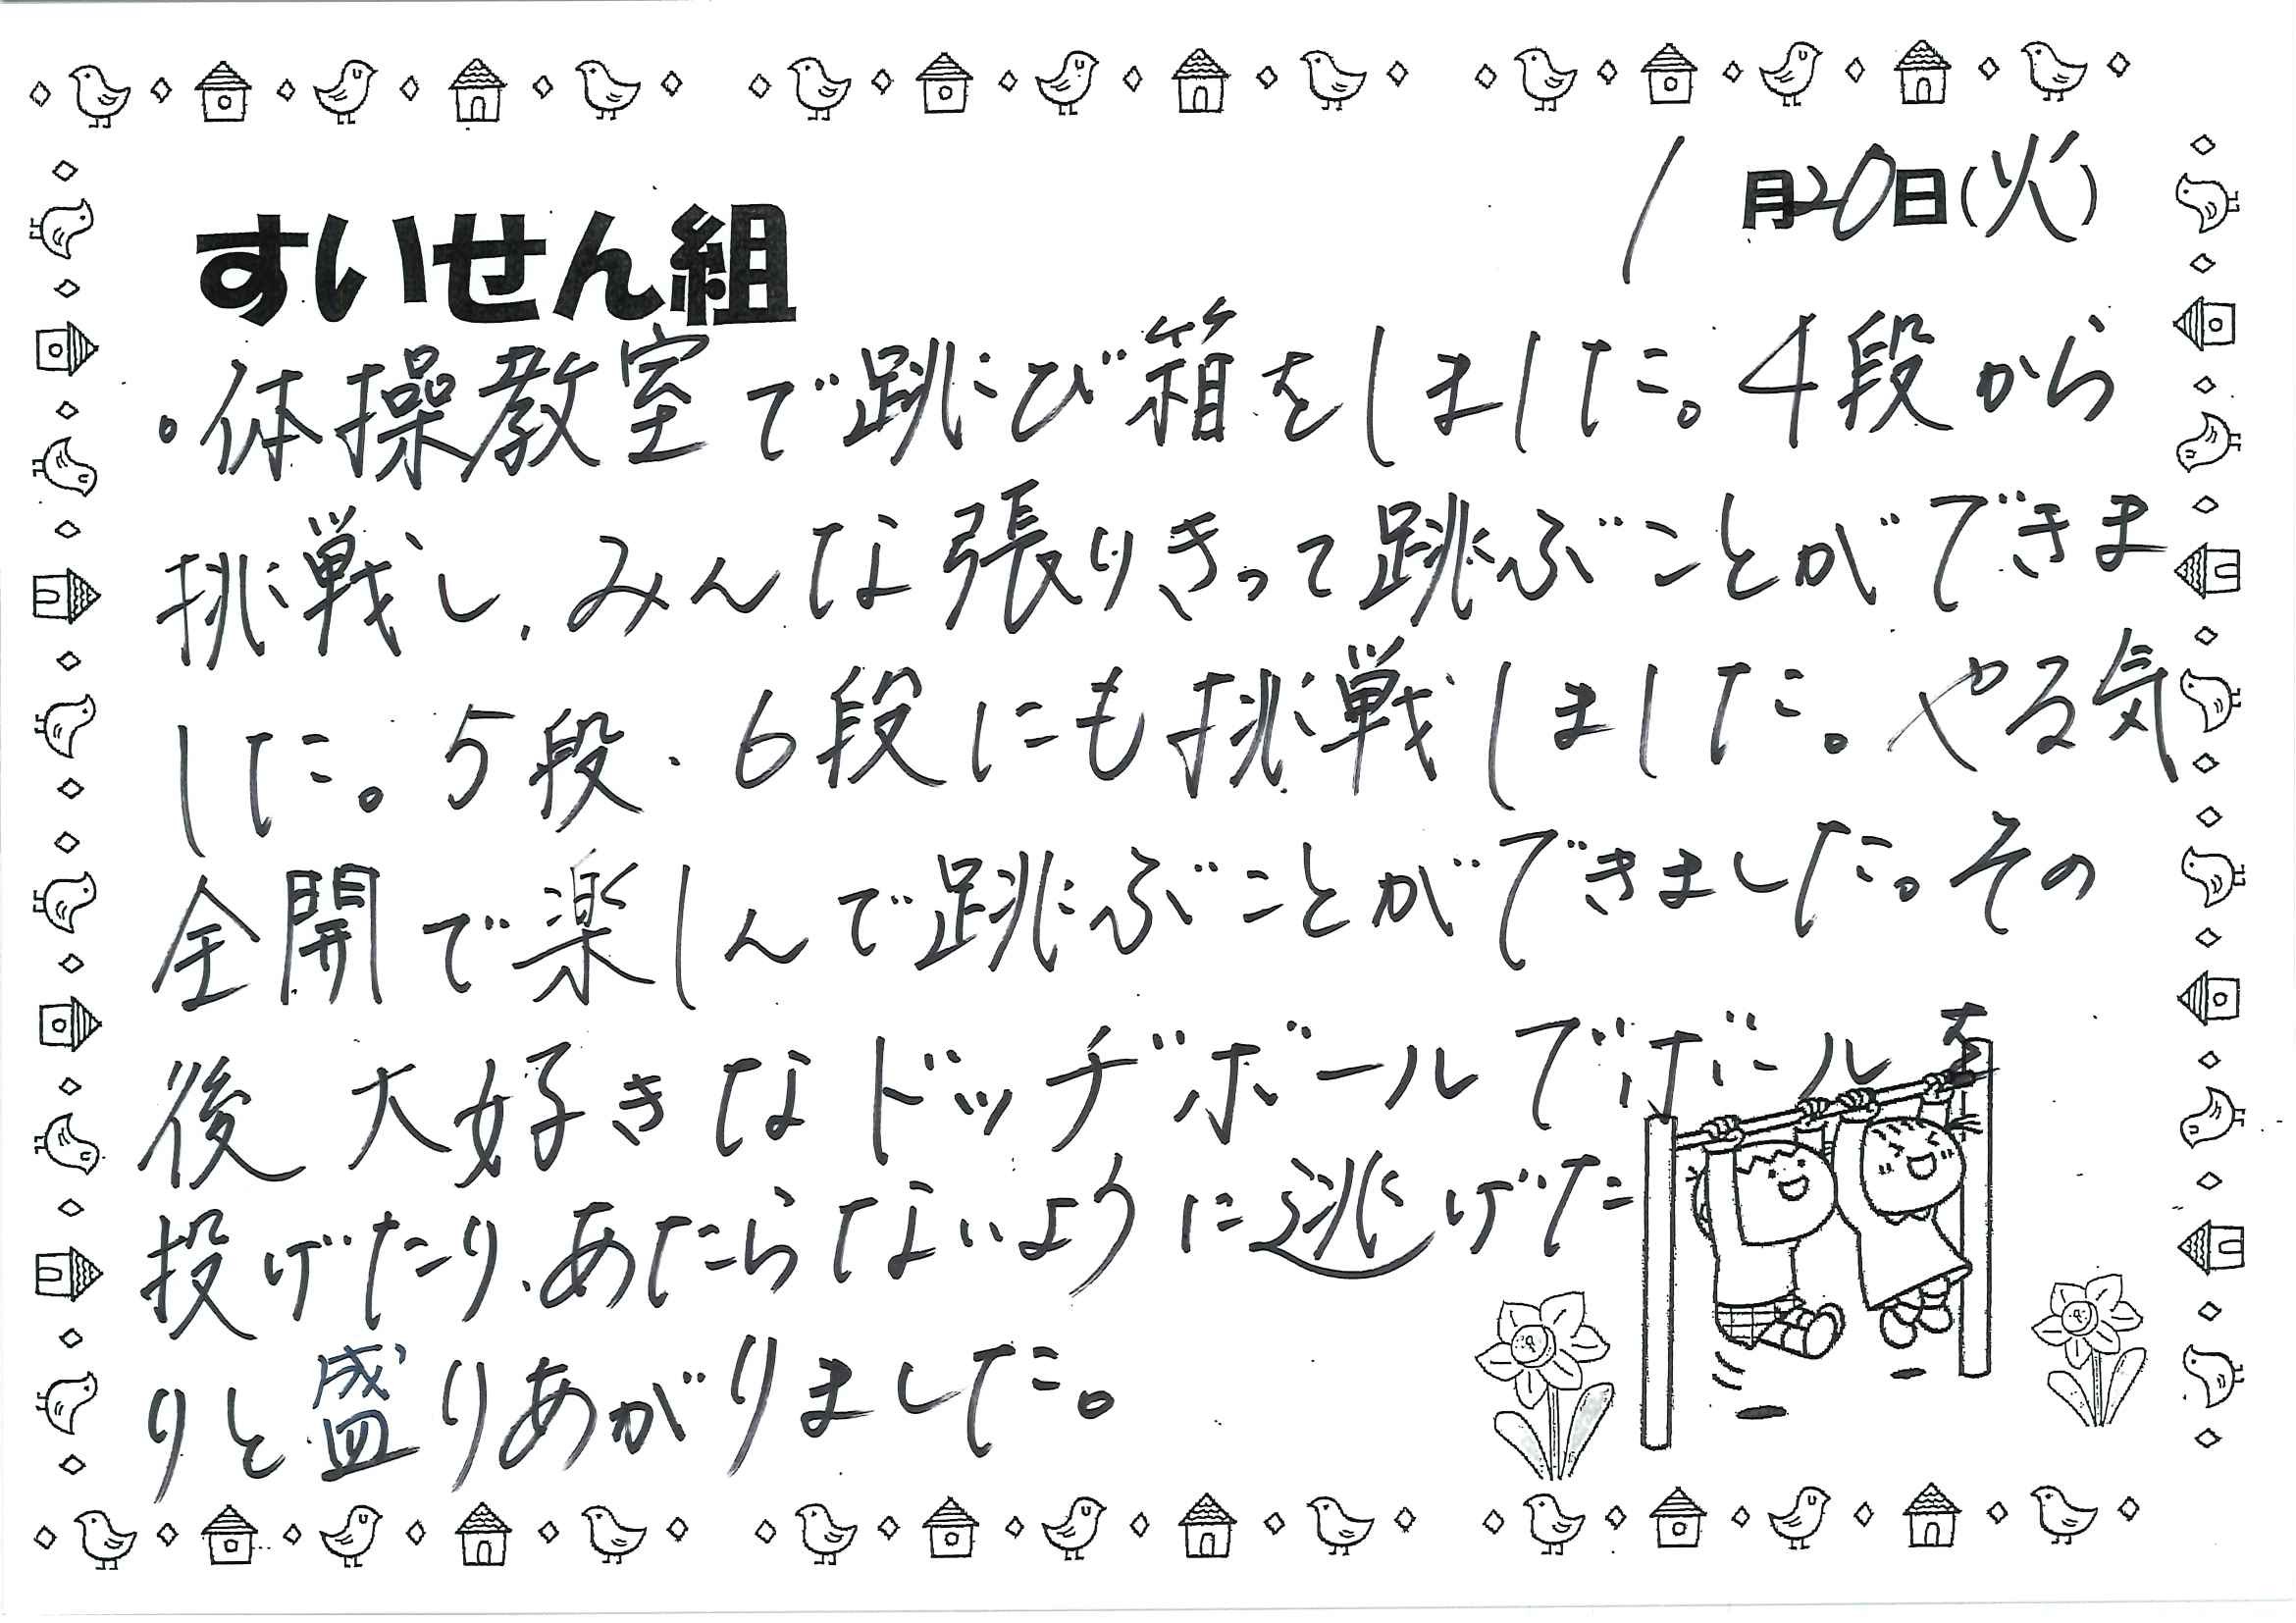 1月20日(火)
すいせん組
。体操教室で跳び箱をしました。4段から
挑戦し、みんな張りきって跳ぶことができま
した。5段・6段にも挑戦しました。やる気
全開で楽しんで跳ぶことができました。その
後 大好きなドッヂボールでボールを
投げたり、あたらないように逃げた
りと盛りあがりました。